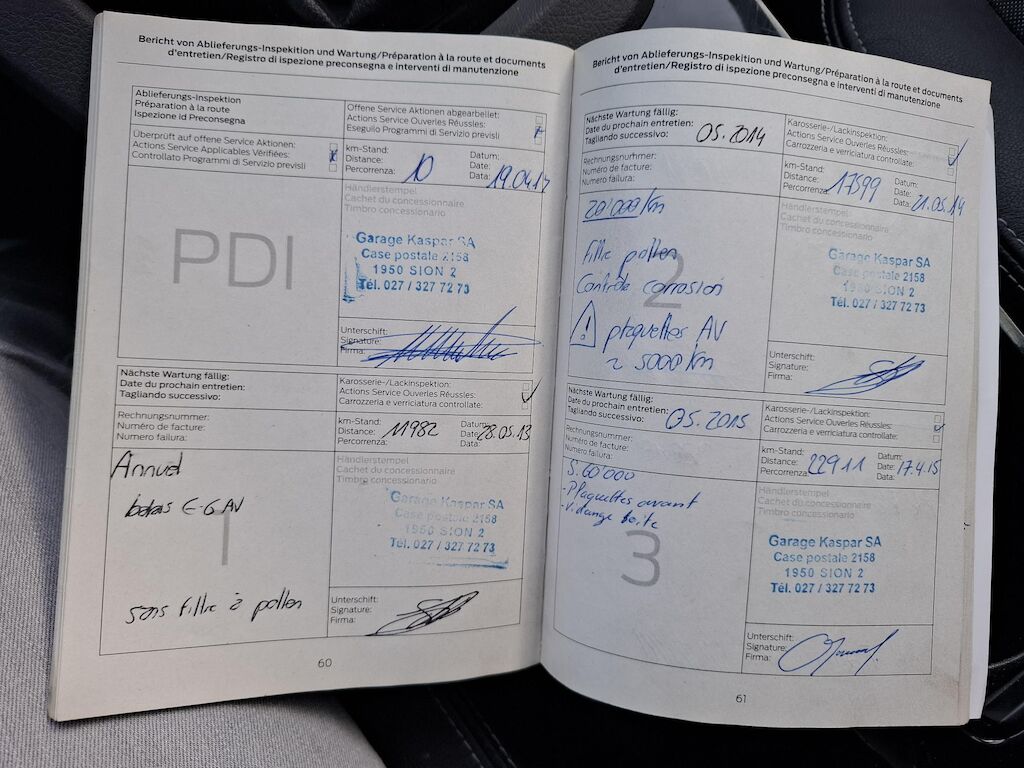 Bericht von Ablieferungs-Inspekition und Wartung/Préparation à la route et documents
d'entretien/Registro di ispezione preconsegna e interventi di manutenzione
Ablieferungs-Inspektion
Préparation à la route
Ispezione id Preconsegna
Offene Service Aktionen abgearbeitet:
Actions Service Ouverles Réussles:
Eseguilo Programmi di Servizio previsli
Überprüft auf offene Service Aktionen:
Actions Service Applicables Vérifiées:
Controllato Programmi di Servizio previsli
km-Stand:
Distance: 10
Percorrenza:
Datum:
Date:
Data:
PDI
Händlerstempel
Cachet du concessionnaire
Timbro concessionario
Garage Kaspar SA
Case postale 2158
1950 SION 2
Tél. 027 / 327 72 73
Unterschift:
Signature:
Firma:
Nächste Wartung fällig:
Date du prochain entretien:
Tagliando successivo:
Karosserie-/Lackinspektion:
Actions Service Ouverles Réussles:
Carrozzeria e verriciatura controllate:
Rechnungsnurmmer:
Numéro de facture:
Numero failura:
km-Stand:
Distance: 11982
Percorrenza:
Datum:
Date: 28.05.13
Data:
Annuel
E-G AV
1
sans filtre à pollen
Händlerstempel
Cachet du concessionnaire
Timbro concessionario
Garage Kaspar SA
Case postale 2158
1950 SION 2
Tél. 027 / 327 72 73
Unterschift:
Signature:
Firma:
60
Bericht von Ablieferungs-Inspekition und Wartung/Préparation à la route et documents
d'entretien/Registro di ispezione preconsegna e interventi di manutenzione
Nächste Wartung fällig:
Date du prochain entretien: 05.2014
Tagliando successivo:
Karosserie-/Lackinspektion:
Actions Service Ouverles Réussles:
Carrozzeria e verriciatura controllate:
Rechnungsnurmmer:
Numéro de facture:
Numero failura:
km-Stand:
Distance: 17599
Percorrenza:
Datum:
Date:
Data: 21.05.14
20'000 Km
filtre pollen
2
Contrôle corrosion
! plaquettes AV
~ 5000 Km
Händlerstempel
Cachet du concessionnaire
Timbro concessionario
Garage Kaspar SA
Case postale 2158
1950 SION 2
Tél. 027 / 327 72 73
Unterschift:
Signature:
Firma:
Nächste Wartung fällig:
Date du prochain entretien: 05.2015
Tagliando successivo:
Karosserie-/Lackinspektion:
Actions Service Ouverles Réussles:
Carrozzeria e verriciatura controllate:
Rechnungsnurmmer:
Numéro de facture:
Numero failura:
km-Stand:
Distance: 22911
Percorrenza:
Datum:
Date: 17.4.15
Data:
S. 60'000
- Plaquettes avant
- Vidange boîte
3
Händlerstempel
Cachet du concessionnaire
Timbro concessionario
Garage Kaspar SA
Case postale 2158
1950 SION 2
Tél. 027 / 327 72 73
Unterschift:
Signature:
Firma:
61